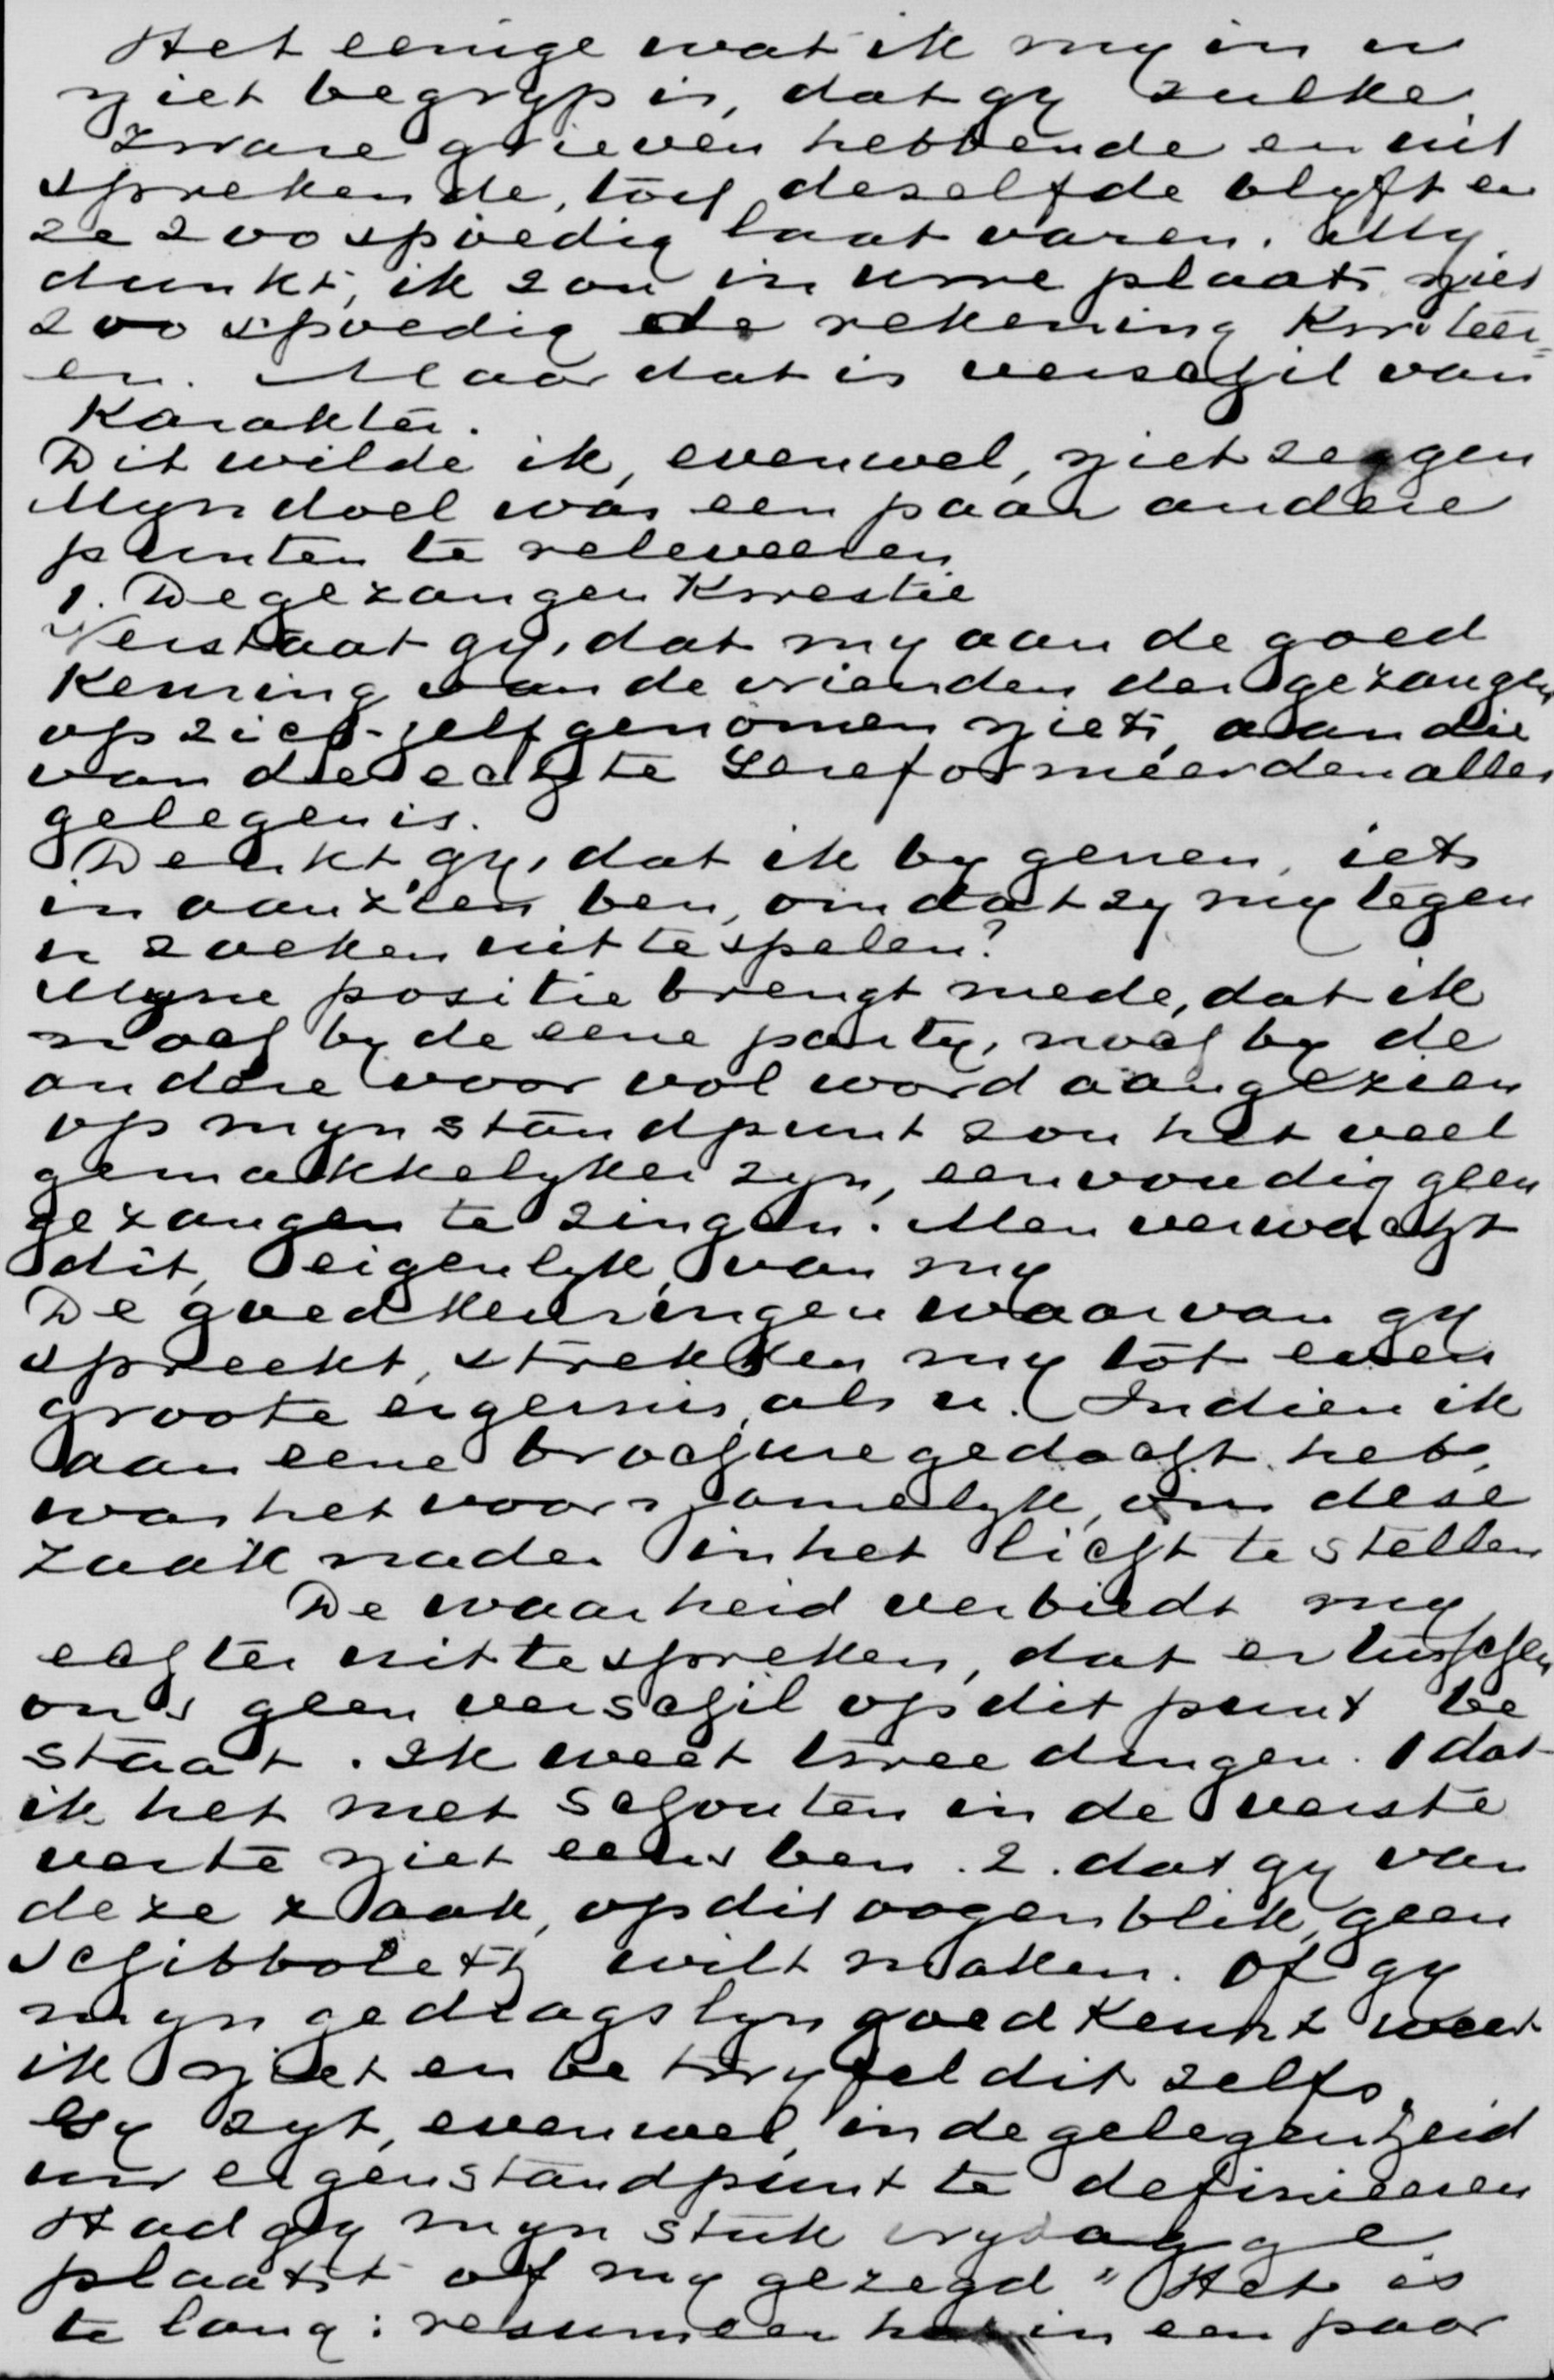 Het eenige wat ik my in u
niet begryp is, dat gy zulke
zware grieven hebbende en uit
sprekende, toch deselfde blyft en
ze zoo spoedig laat varen. My
dunkt, ik zou in uwe plaats niet
zoo spoedig de rekening kwiteer=
en. Maar dat is verschil van
karakter.
Dit wilde ik, evenwel, niet zeggen
Myn doel was een paar andere
punten te releveeren
1. De gezangen kwestie
Verstaat gy, dat my aan de goed
keuring van de vrienden der gezangen
op zich-zelf genomen niets, aan die
van de echte Gereformeerden alles
gelegen is.
Denkt gy, dat ik by genen, iets
in aanzien ben, omdat zy my tegen
u zoeken uit te spelen?
Myne positie brengt mede, dat ik
noch by de eene party, noch by de
andere voor vol word aangezien
op myn standpunt zou het veel
gemakkelyker zyn, eenvoudig geen
gezangen te zingen. Men verwacht
dit, eigenlyk, van my
De goedkeuringen waarvan gy
spreekt, strekken my tot even
groote ergernis, als u. Indien ik
aan eene brochure gedacht heb,
was het voornamelyk, om dese
zaak nader in het licht te stellen
De waarheid verbiedt my
echter uit te spreken, dat er tusschen
ons geen verschil op dit punt be
staat. Ik weet twee dingen. 1 dat
ik het met Schouten in de verste
verte niet eens ben. 2. dat gy van
deze zaak, op dit oogenblik, geen
schibboleth wilt maken. Of gy
myn gedragslyn goedkeurt weet
ik niet en betwyfel dit zelfs.
Gy zyt, evenwel, in de gelegenheid
uw eigen standpunt te definieeren
Had gy myn stuk vrydag ge
plaatst of my gezegd "Het is
te lang: resumeer het in een paar